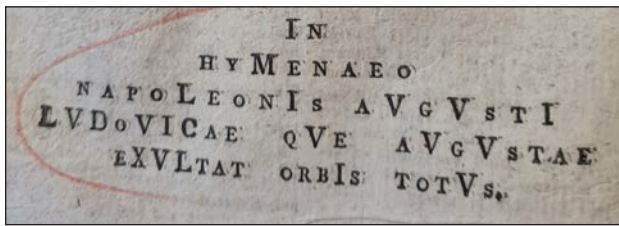 IN
HYMENAEO
NAPOLEONIS AVGVSTI
LVDOVICAE QVE AVGVSTAE
EXVLTAT ORBIS TOTVS.